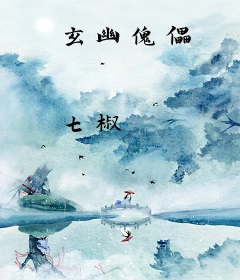 玄幽傀儡
七椒